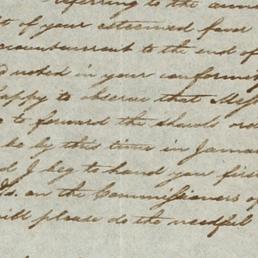 referring to the
t of your esteemed favor
account current to the end of
d noted in your conformity
happy to observe that Mess
to forward the should
to be by this time in Jama
d I beg to hand you first
on the Commissioners of
will please do the needful